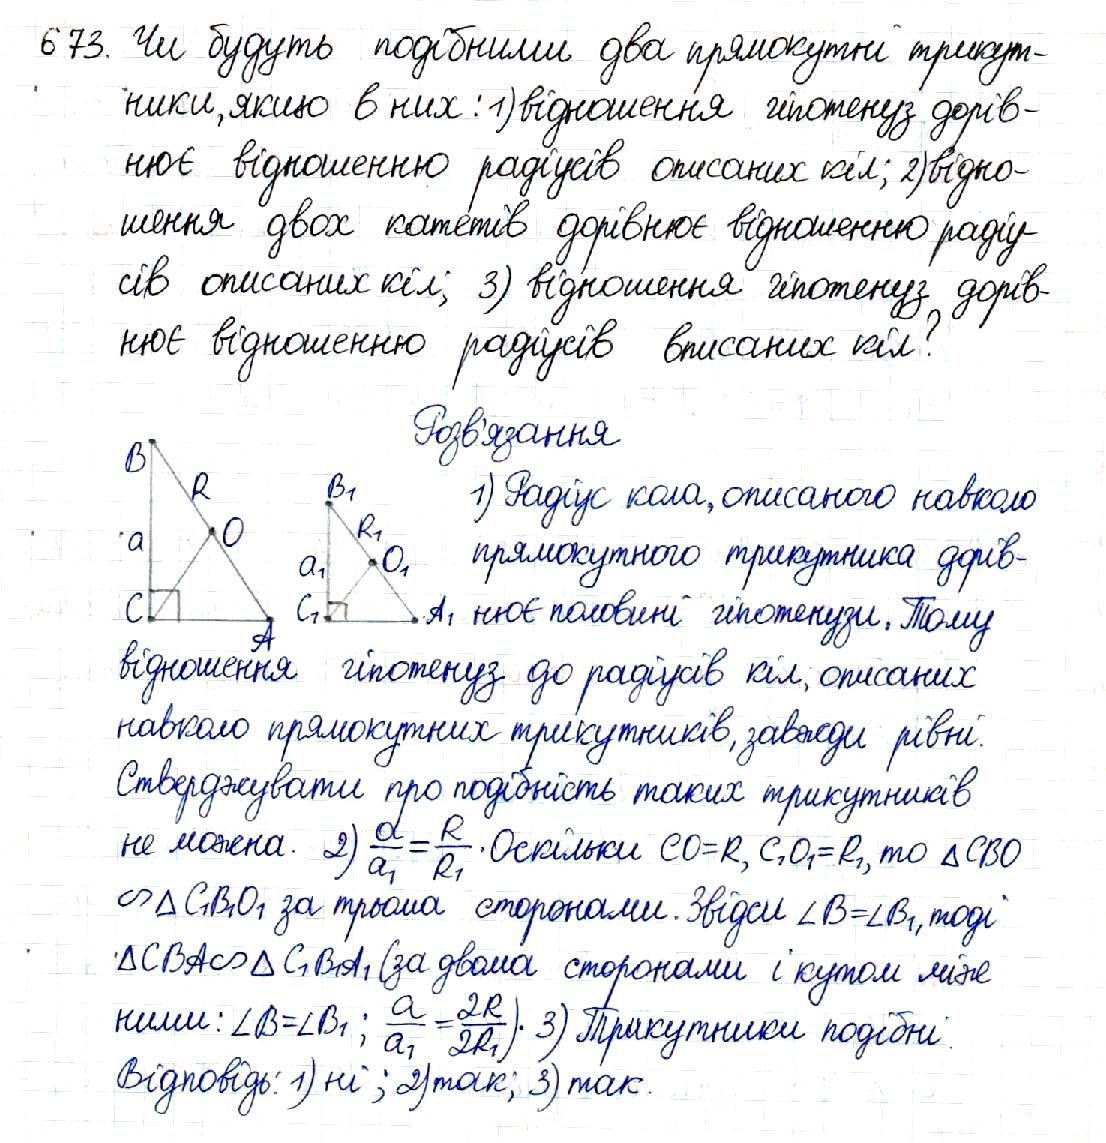 673. Чи будуть подібними два прямокутні трикут-
ники, якщо в них: 1) відношення гіпотенуз дорів-
нює відношенню радіусів описаних кіл; 2) відно-
шення двох катетів дорівнює відношенню радіу-
сів описаних кіл; 3) відношення гіпотенуз дорів-
нює відношенню радіусів вписаних кіл?
Розв'язання
B R O a C A
B₁ R₁ O₁ a₁ C₁ A₁
1) Радіус кола, описаного навколо
прямокутного трикутника дорів-
нює половині гіпотенузи. Тому
відношення гіпотенуз до радіусів кіл, описаних
навколо прямокутних трикутників, завжди рівні.
Стверджувати про подібність таких трикутників
не можна. 2) a/a₁ = R/R₁. Оскільки CO=R, C₁O₁=R₁, то △CBO
∽ △C₁B₁O₁ за трьома сторонами. Звідси ∠B=∠B₁, тоді
△CBA∽△C₁B₁A₁ (за двома сторонами і кутом між
ними: ∠B=∠B₁; a/a₁ = 2R/2R₁). 3) Трикутники подібні.
Відповідь: 1) ні; 2) так; 3) так.